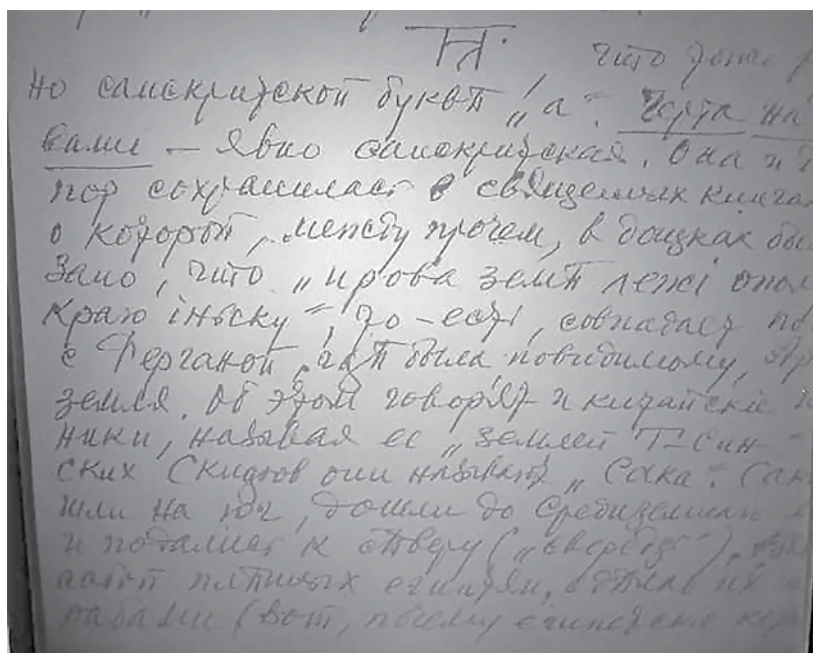 что тоже
но санскритской буквѣ „а“. Черта на
вами — явно санскритская. Она и
пор сохранилась в священных книгах
о которой, между прочем, в дощках бы
зано, что „ирова земѣ лежі
краю іньску“, то-есть, совпадает
с Ферганой, гдѣ была повидимому,
земля. Об этом говорят и китайскіе
ники, называя ее „землей Т-Син
ских Скифов они называют „Сака“.
шли на юг, дошли до Средиземнаго
и подались к сѣверу
египтян, их
рабами (вот, почему египетскіе